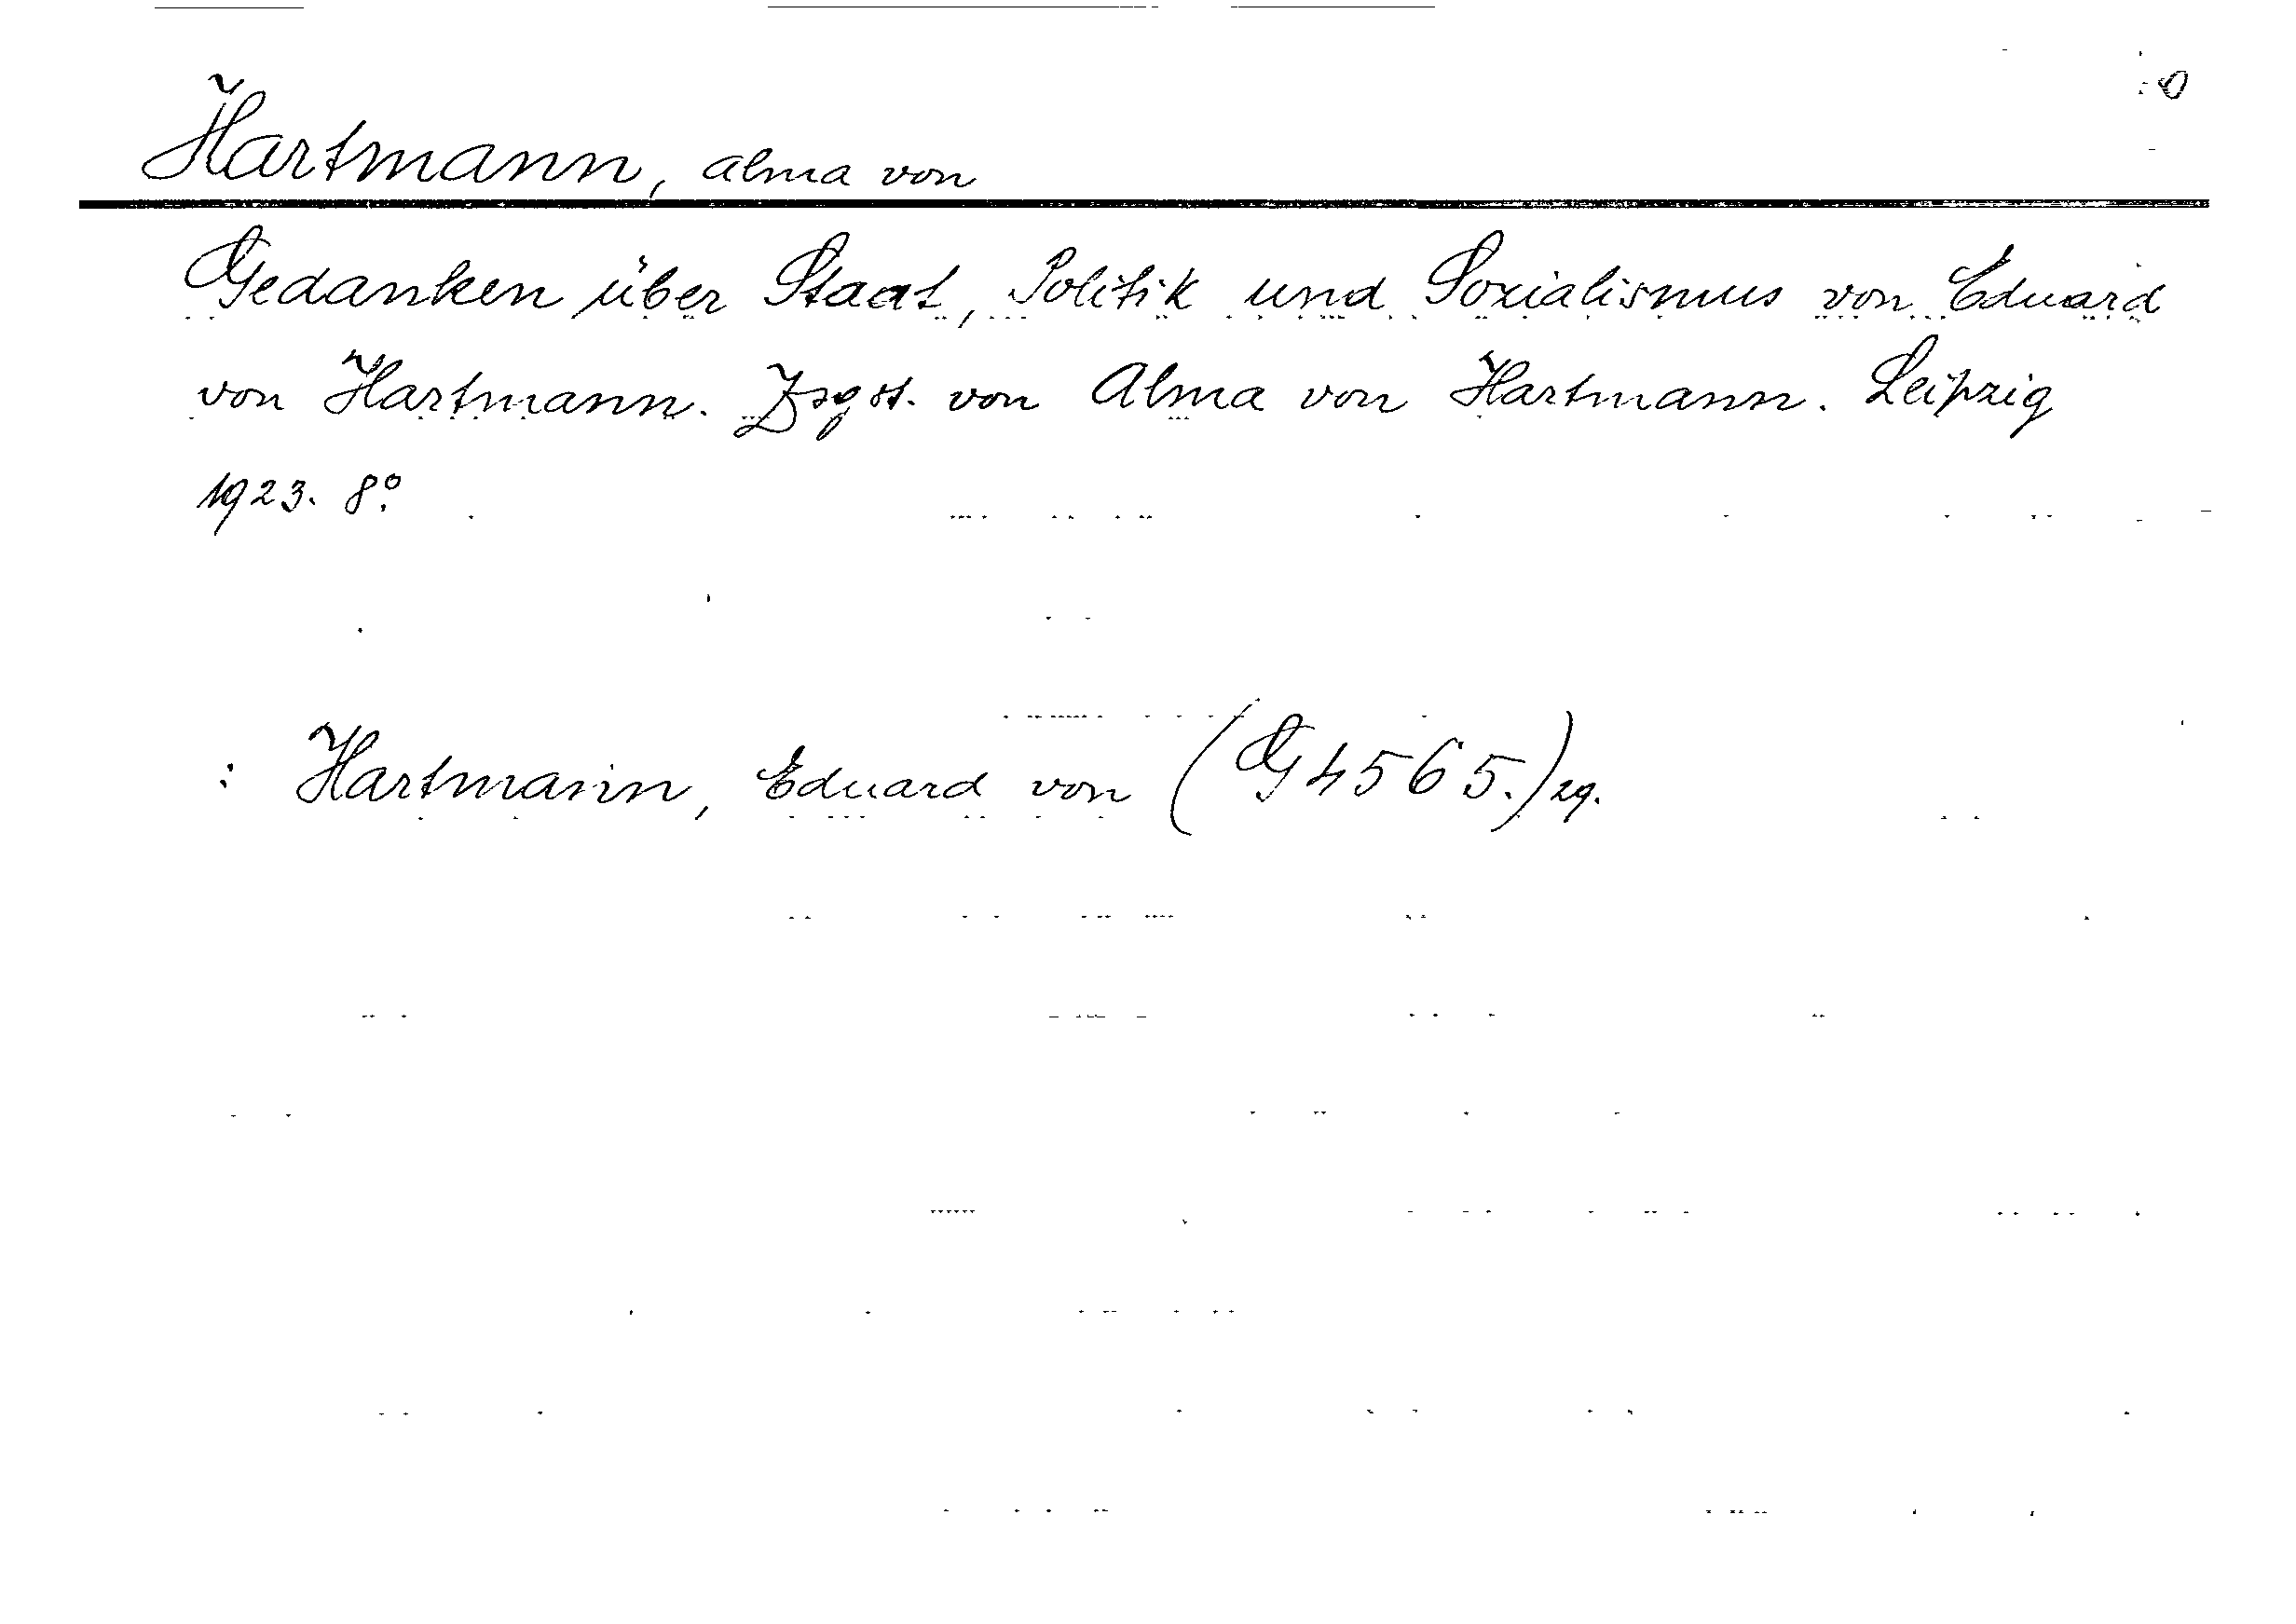 Hartmann, Alma von
Gedanken über Staat, Politik und Sozialismus von Eduard
von Hartmann. Zsgst. von Alma von Hartmann. Leipzig
1923. 8°.
: Hartmann, Eduard von (G 4565.) 29.